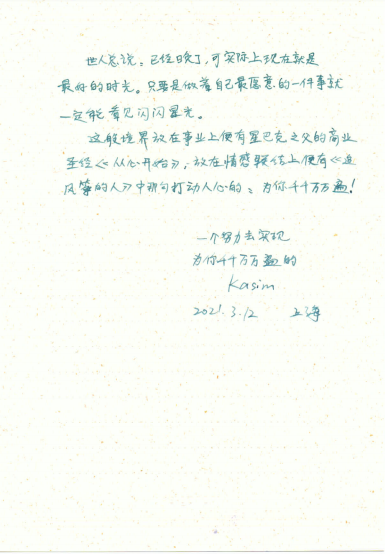 世人总说：已经晚了，可实际上现在就是
最好的时光。只要是做着自己最愿意的一件事就
一定能看见闪闪星光。
这般境界放在事业上便有星巴克之父的商业
圣经《从心开始》；放在情感联结上便有《追
风筝的人》中那句打动人心的：为你千千万万遍！
一个努力去实现
为你千千万万遍的
Kasim
2021.3.12 上海